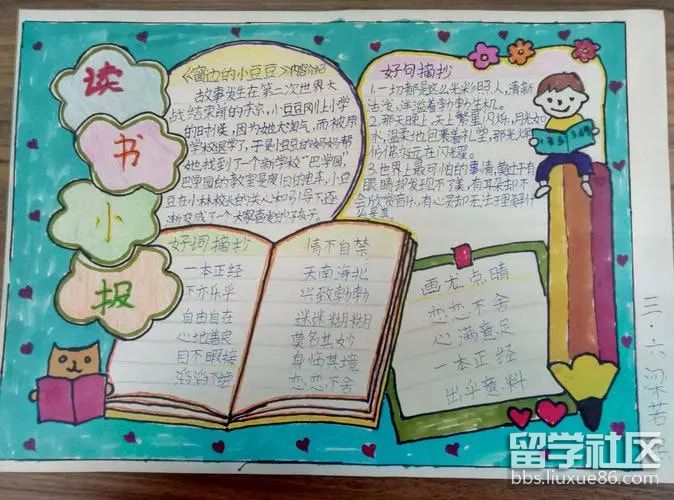 读
书
小
报
《窗边的小豆豆》内容介绍
故事发生在第二次世界大
战结束前的东京,小豆豆刚上小学
的时候,因为她太淘气,而被原
学校退学了,于是小豆豆的妈妈帮
她找到了一个新学校“巴学园”,
巴学园的教室是废旧的电车,小豆
豆在小林校长的关心和引导下逐
渐变成了一个大家喜爱的孩子。
好句摘抄
1.一切都是这么光彩照人,清新
活泼,洋溢着勃勃生机。
2.那天晚上,天上繁星闪烁,月光如
水,温柔地回来着礼堂,那光辉
仿佛永远在闪耀。
3.世界上最可怕的事情,莫过于有
眼睛却发现不了美,有耳朵却不
会欣赏音乐,有心灵却无法理解什
么是真。
好词摘抄
一本正经
不亦乐乎
自由自在
心地善良
目不暇接
滔滔不绝
情不自禁
天南海北
兴致勃勃
迷迷糊糊
莫名其妙
身临其境
恋恋不舍
画龙点睛
恋恋不舍
心满意足
一本正经
出乎意料
三.六梁若
留学社区
bbs.liuxue86.com